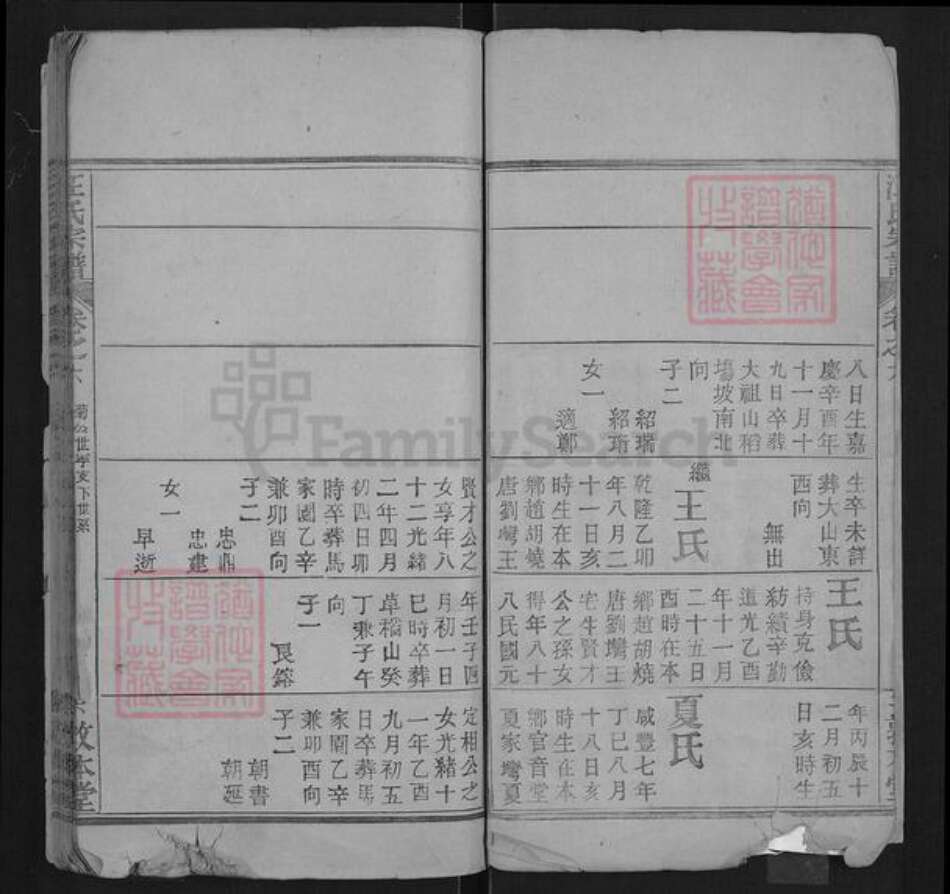 汪氏宗譜
卷之六
八日生嘉
慶辛酉年
十一月十
九日卒葬
大祖山稻
場坡南北
向
子二
紹瑞
紹珩
女一
適鄭
生卒未詳
葬大山東
西向
無出
繼王氏
乾隆乙卯
年八月二
十一日亥
時生在本
鄉趙胡燒
唐劉灣王
王氏
持身克儉
紡績辛勤
道光乙酉
年十一月
二十五日
酉時在本
鄉趙胡燒
唐劉灣王
宅生賢才
公之孫女
得年八十
八民國元
年丙辰十
二月初五
日亥時生
夏氏
咸豐七年
丁巳八月
十八日亥
時生在本
鄉官音堂
夏家灣夏
賢才公之
女享年八
十二光緒
二年四月
初四日卯
時卒葬馬
家園乙辛
兼卯酉向
子二
忠鼎
忠建
女一
早逝
年壬子四
月初一日
巳時卒葬
草稻山癸
丁兼子午
向
子一
良鎔
定相公之
女光緒十
一年乙酉
九月初五
日卒葬馬
家園乙辛
兼卯酉向
子二
朝書
朝延
汪氏宗譜
卷之六
六
敦本堂
FamilySearch